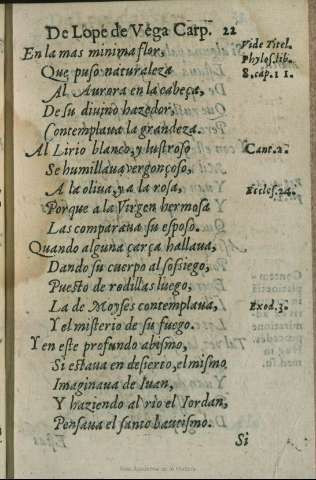 De Lope de Vega Carp. 22
En la mas minima flor,
Que puso naturaleza
Al Aurora en la cabeça,
De su divino hazedor,
Contemplava la grandeza.
Al Lirio blanco, y lustroso
Se humillava vergonçoso,
A la oliva, y a la rosa,
Porque a la Virgen hermosa
Las comparava su esposo.
Quando alguna çarça hallaua,
Dando su cuerpo al sosiego,
Puesto de rodillas luego,
La de Moyses contemplava,
Y el misterio de su fuego.
Y en este profundo abismo,
Si estaua en desierto, el mismo
Imaginaua de Iuan,
Y haziendo al rio el Iordan,
Pensava el santo bautismo.
Si
Vide Titel.
Phylos. lib.
8. cap. 11.
Cant. 2.
Eccles. 24.
Exod. 3.
Real Academia de la Historia